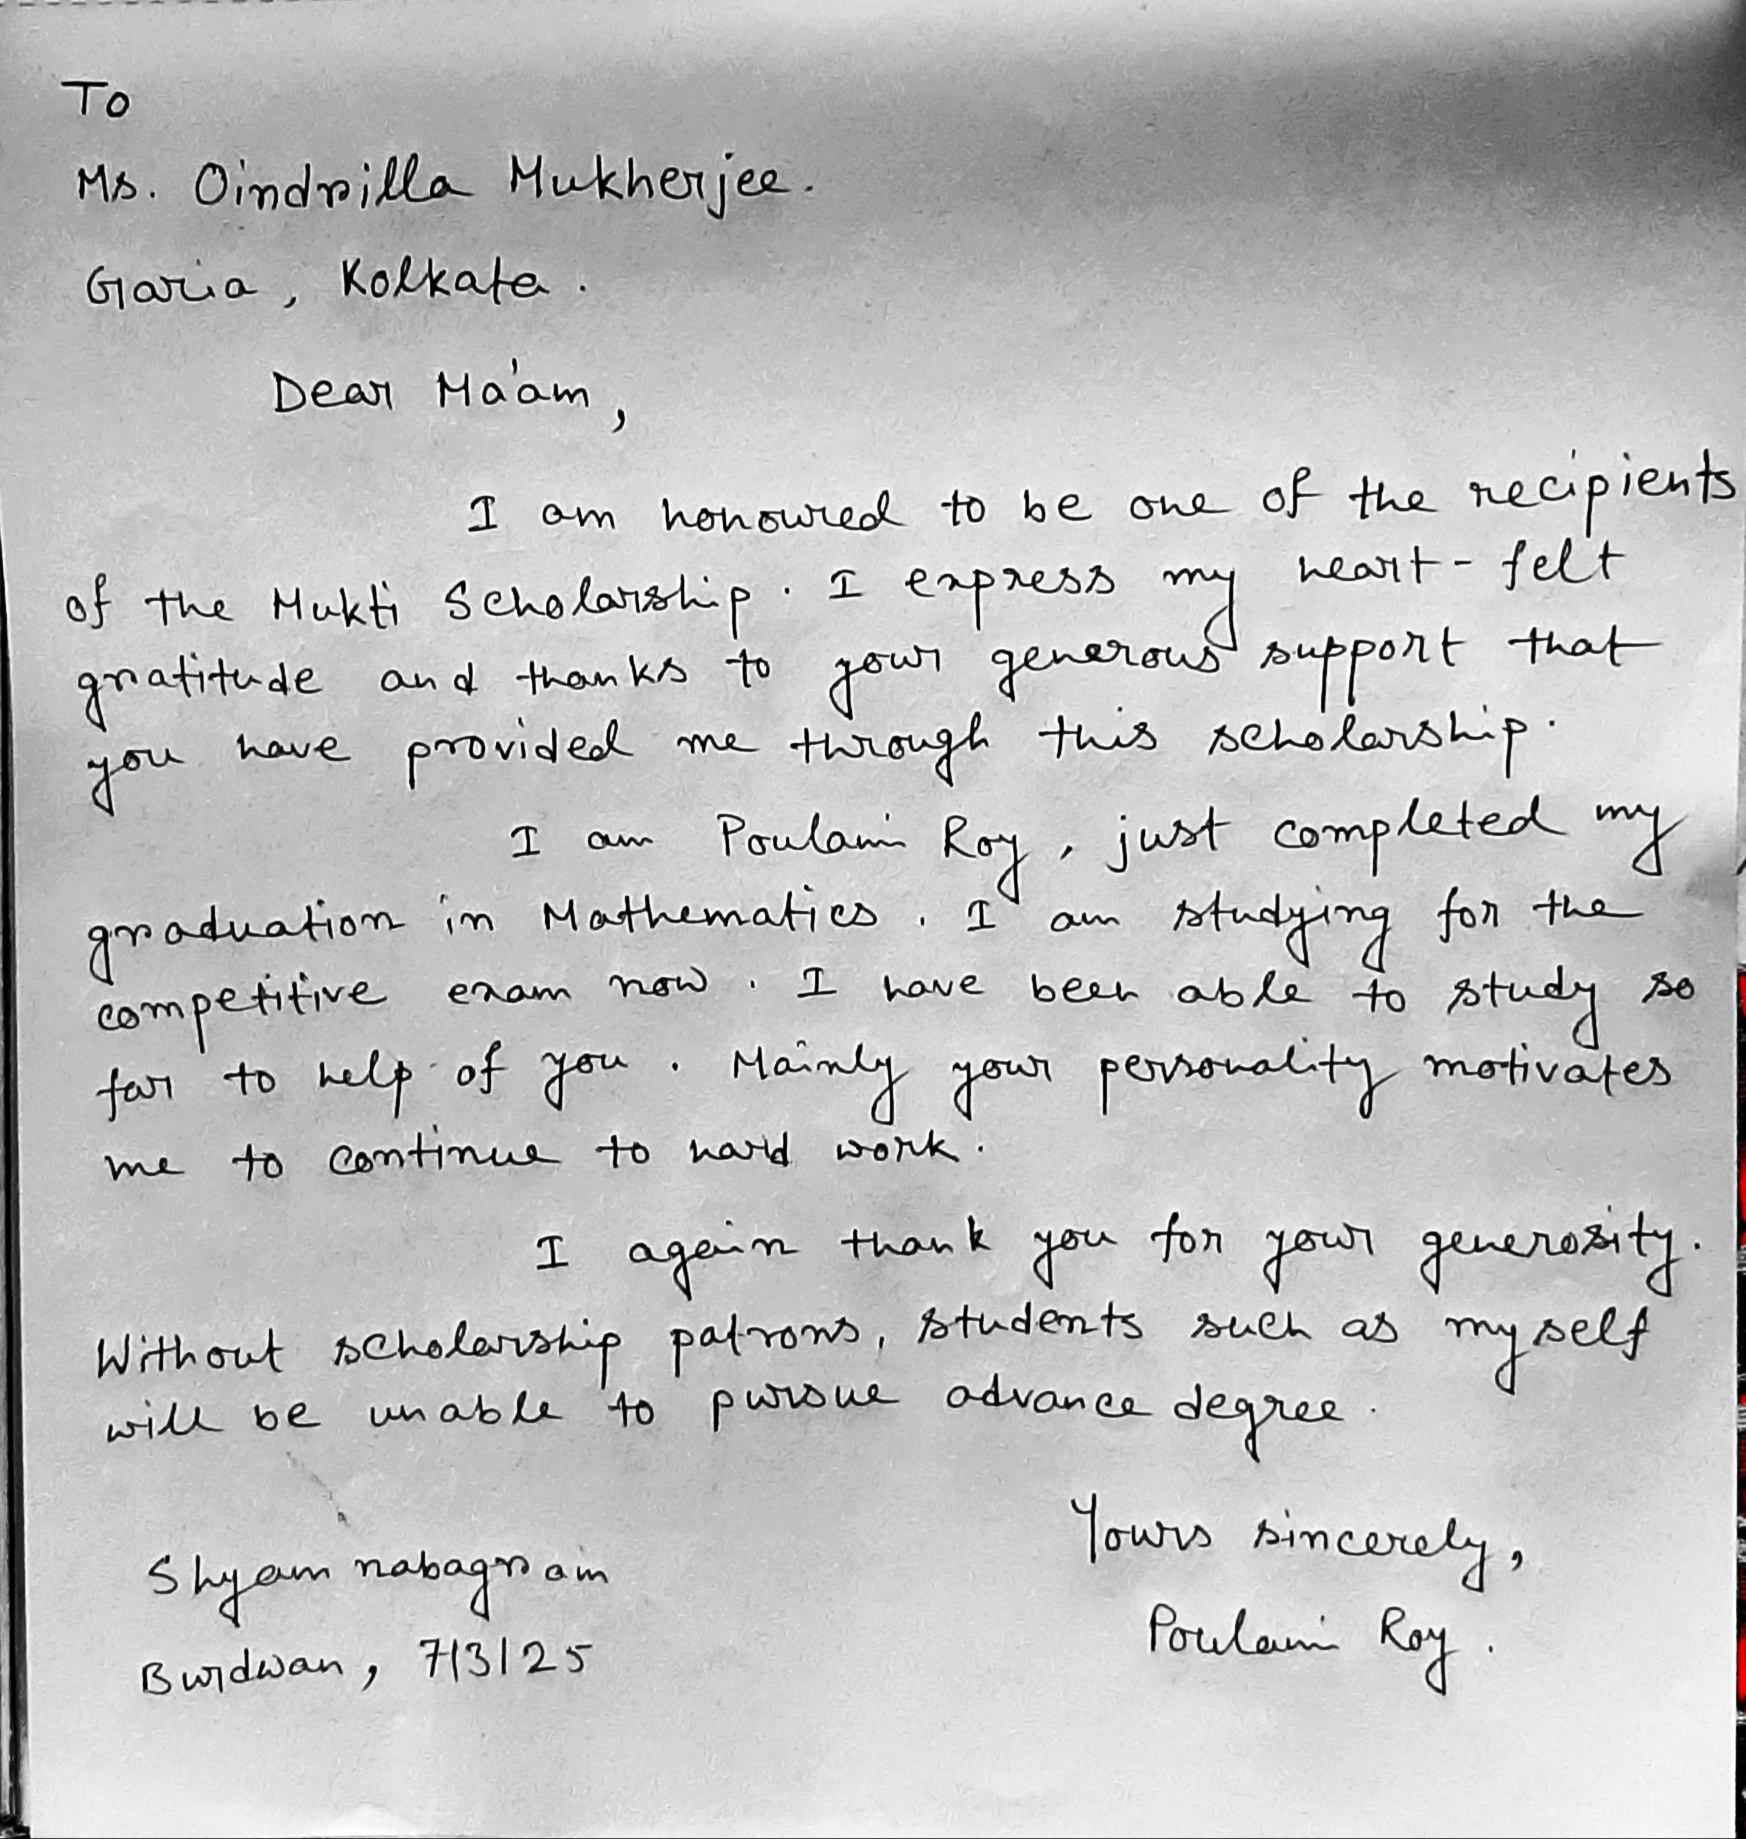 To
Ms. Oindrilla Mukherjee.
Garia, Kolkata.
Dear Ma'am,
I am honoured to be one of the recipients
of the Mukti Scholarship. I express my heart-felt
gratitude and thanks to your generous support that
you have provided me through this scholarship.
I am Poulami Roy, just completed my
graduation in Mathematics. I am studying for the
competitive exam now. I have been able to study so
far to help of you. Mainly your personality motivates
me to continue to hard work.
I again thank you for your generosity.
Without scholarship patrons, students such as myself
will be unable to pursue advance degree.
Yours sincerely,
Shyamnabagram
Poulami Roy.
Burdwan, 7/3/25